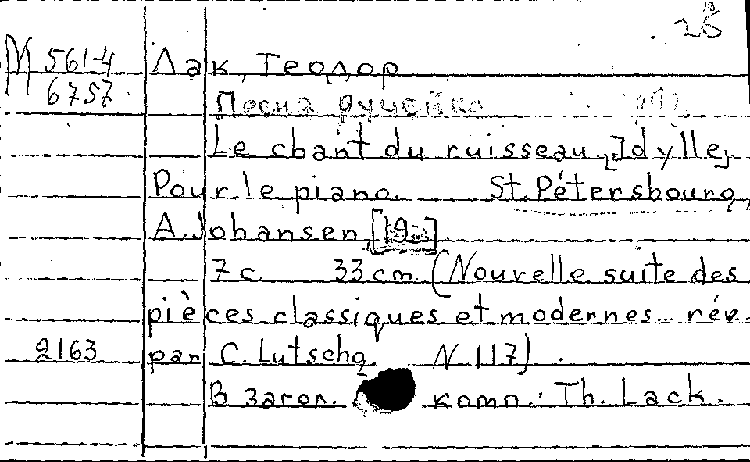 26
М 561-4 Лак, Теодор
6757 Песня ручейка
Le chant du ruisseau [Idylle]
Pour le piano. St. Pétersbourg,
A. Johansen, [19--]
7 с. 33 cm. (Nouvelle suite des
pièces classiques et modernes... rév.
2163 par C. Lutschg. N 117)
В загол. комп.: Th. Lack.